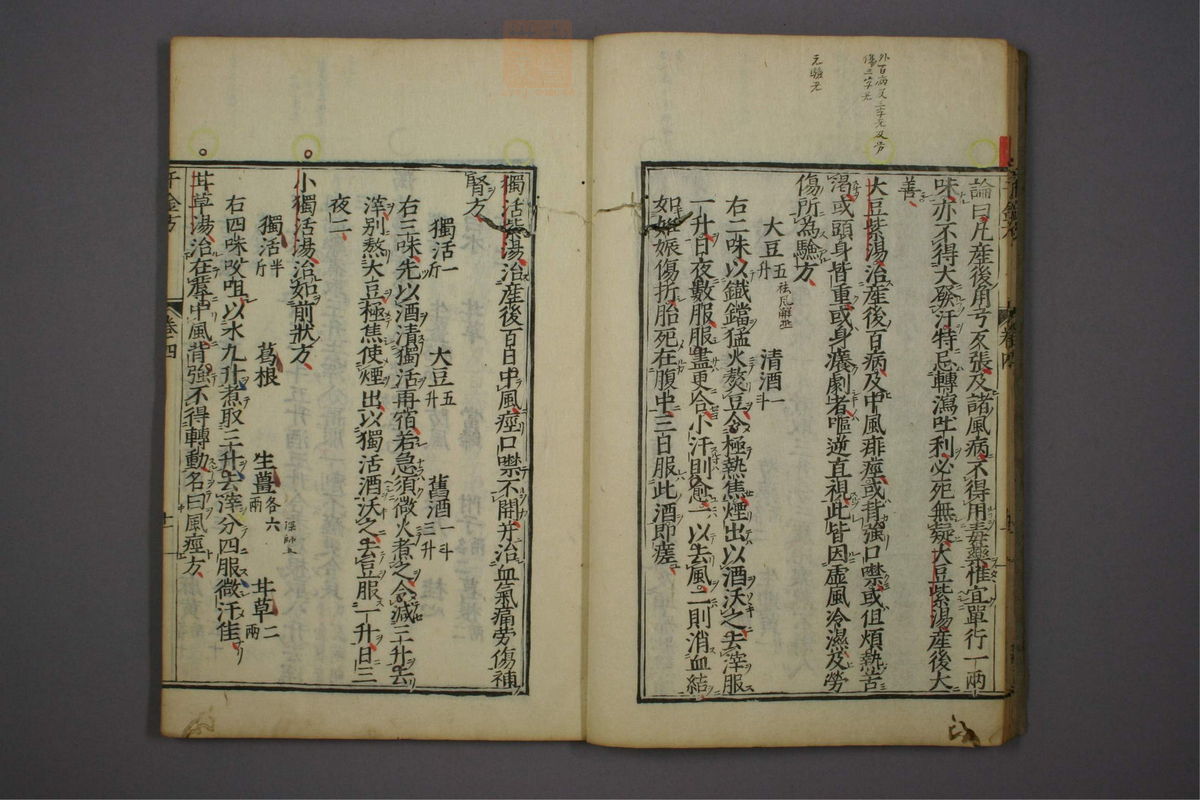 外百病及三字无及労
傷三字无
无驗无
論曰凡産後角弓反張及諸風病不得用毒藥惟宜單行一兩
味亦不得大發汗特忌轉瀉吐利必死無疑大豆紫湯産後大
善
大豆紫湯治産後百病及中風痱痙或背強口噤或但煩熱苦
渇或頭身皆重或身癢劇者嘔逆直視此皆因虚風冷濕及勞
傷所為驗方
大豆五升 清酒一斗
右二味以鐵鐺猛火熬豆令極熱焦煙出以酒沃之去滓服
一升日夜數服服盡更合小汗則愈一以去風二則消血結
如妊娠傷折胎死在腹中三日服此酒即瘥
千金方 卷四
獨活紫湯治産後百日中風痙口噤不開并治血氣痛勞傷補
腎方
獨活一斤 大豆五升 舊酒一斗三升
右三味先以酒漬獨活再宿若急須微火煮之令減三升去
滓別熬大豆極焦使煙出以獨活酒沃之去豆服一升日三
夜二
小獨活湯治如前狀方
獨活半斤 葛根 生薑各六兩 深師五 甘草二兩
右四味㕮咀以水九升煮取三升去滓分四服微汗佳
甘草湯治在蓐中風背強不得轉動名曰風痙方
千金方 卷四 十一